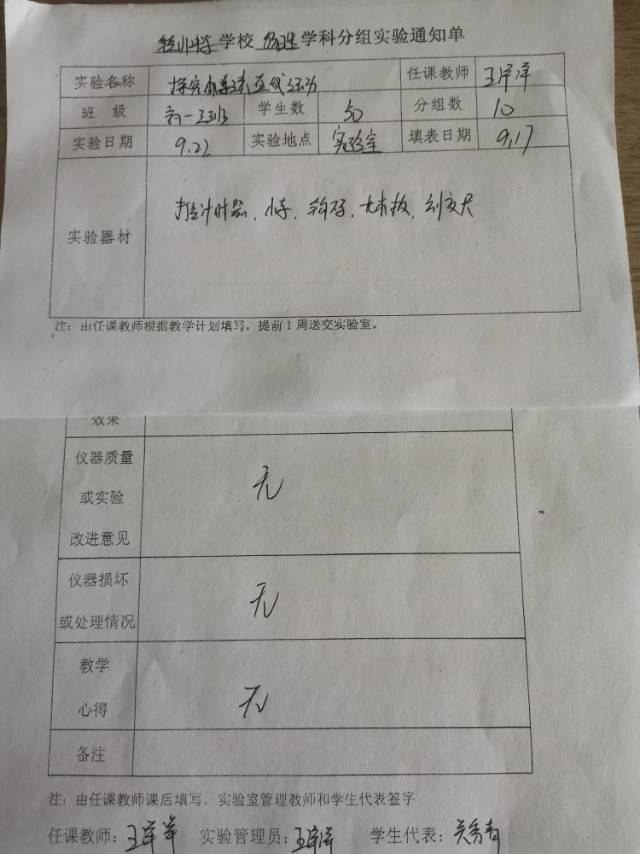 学校 物理 学科分组实验通知单
实验名称 探究小车速度直线运动 任课教师 王洋洋
班 级 高一二班 学生数 50 分组数 10
实验日期 9.22 实验地点 实验室 填表日期 9.17
实验器材 打点计时器、小车、钩码、长木板、刻度尺
注：由任课教师根据教学计划填写，提前1周送交实验室。
效果
仪器质量
或实验 无
改进意见
仪器损坏 无
或处理情况
教学
心得 无
备注
注：由任课教师课后填写，实验室管理教师和学生代表签字
任课教师：王洋洋 实验管理员：王洋洋 学生代表：